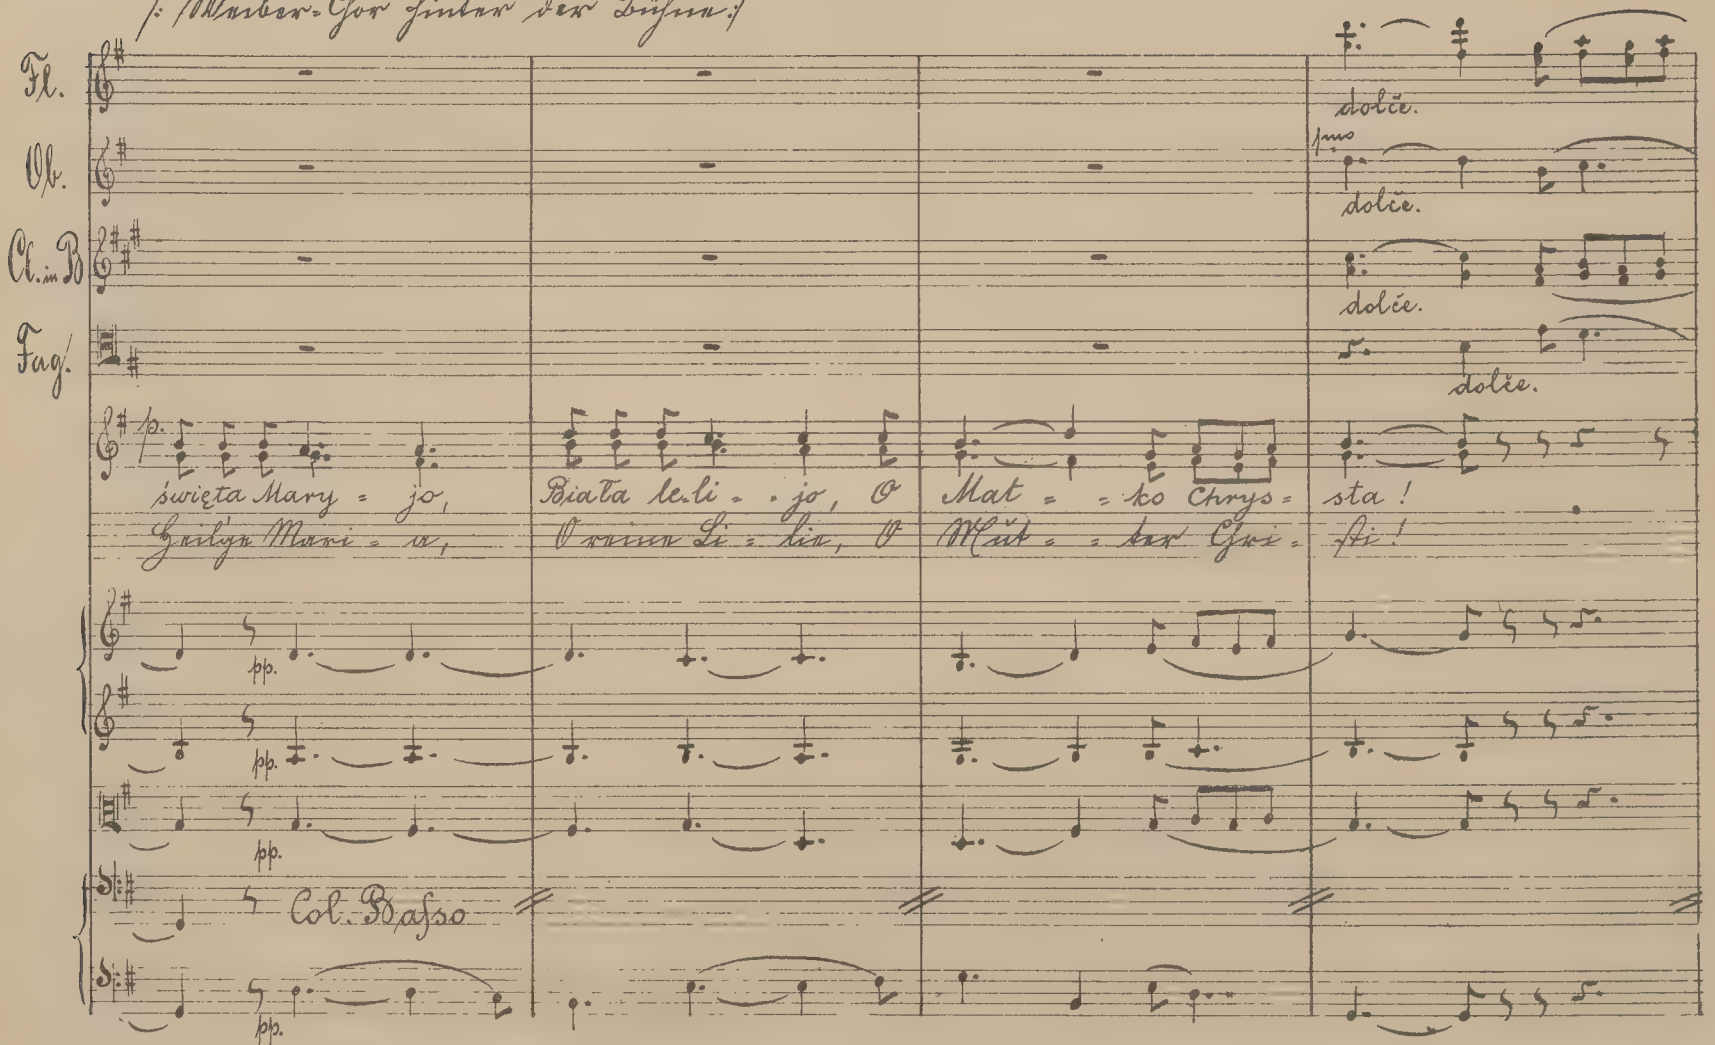 /: Weiber-Chor hinter der Bühne :/
Fl.
dolče.
pmo
Ob.
dolče.
Cl. in B
dolče.
Fag.
dolče.
p.
święta Mary - jo, Biała le-li - - jo, O Mat - - ko Chrys - sta!
Heil'ge Mari - a, O reine Li - lie, O Mut - - ter Chri - sti!
pp.
pp.
pp.
Col. Basso
pp.